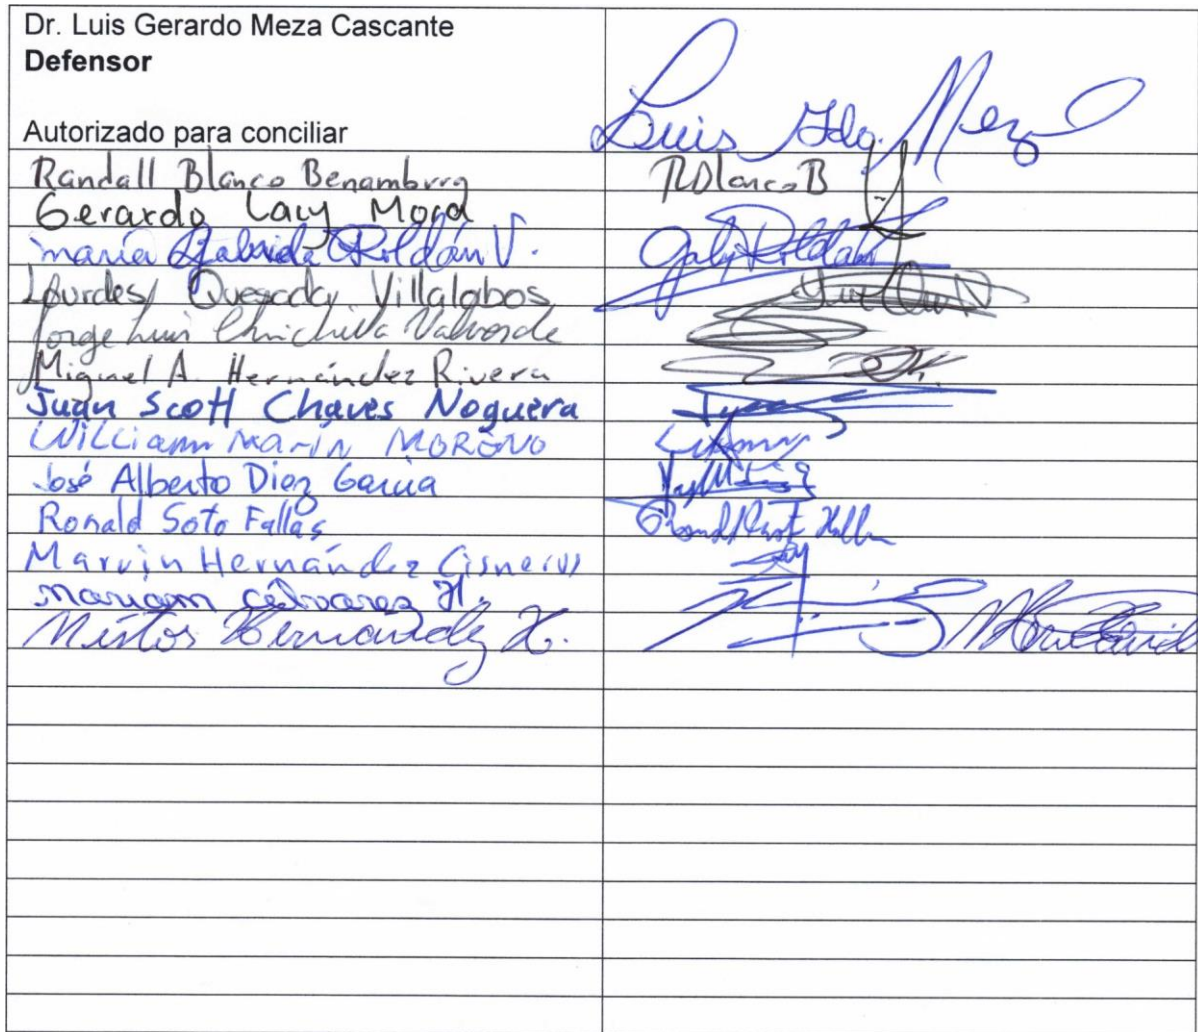 Dr. Luis Gerardo Meza Cascante
Defensor
Autorizado para conciliar
Luis Gdo. Meza
Randall Blanco Benamburg RBlancoB
Gerardo Lacy Mora
maría Gabriela Roldán V. Gaby Roldán
Lourdes Quesada Villalobos
Jorge Luis Chinchilla Valverde
Miguel A. Hernández Rivera
Juan Scott Chaves Noguera
William Marín MORENO
José Alberto Díaz García
Ronald Soto Fallas
Marvin Hernández Cisneros
mariam álvarez H.
Néstor Hernández H.